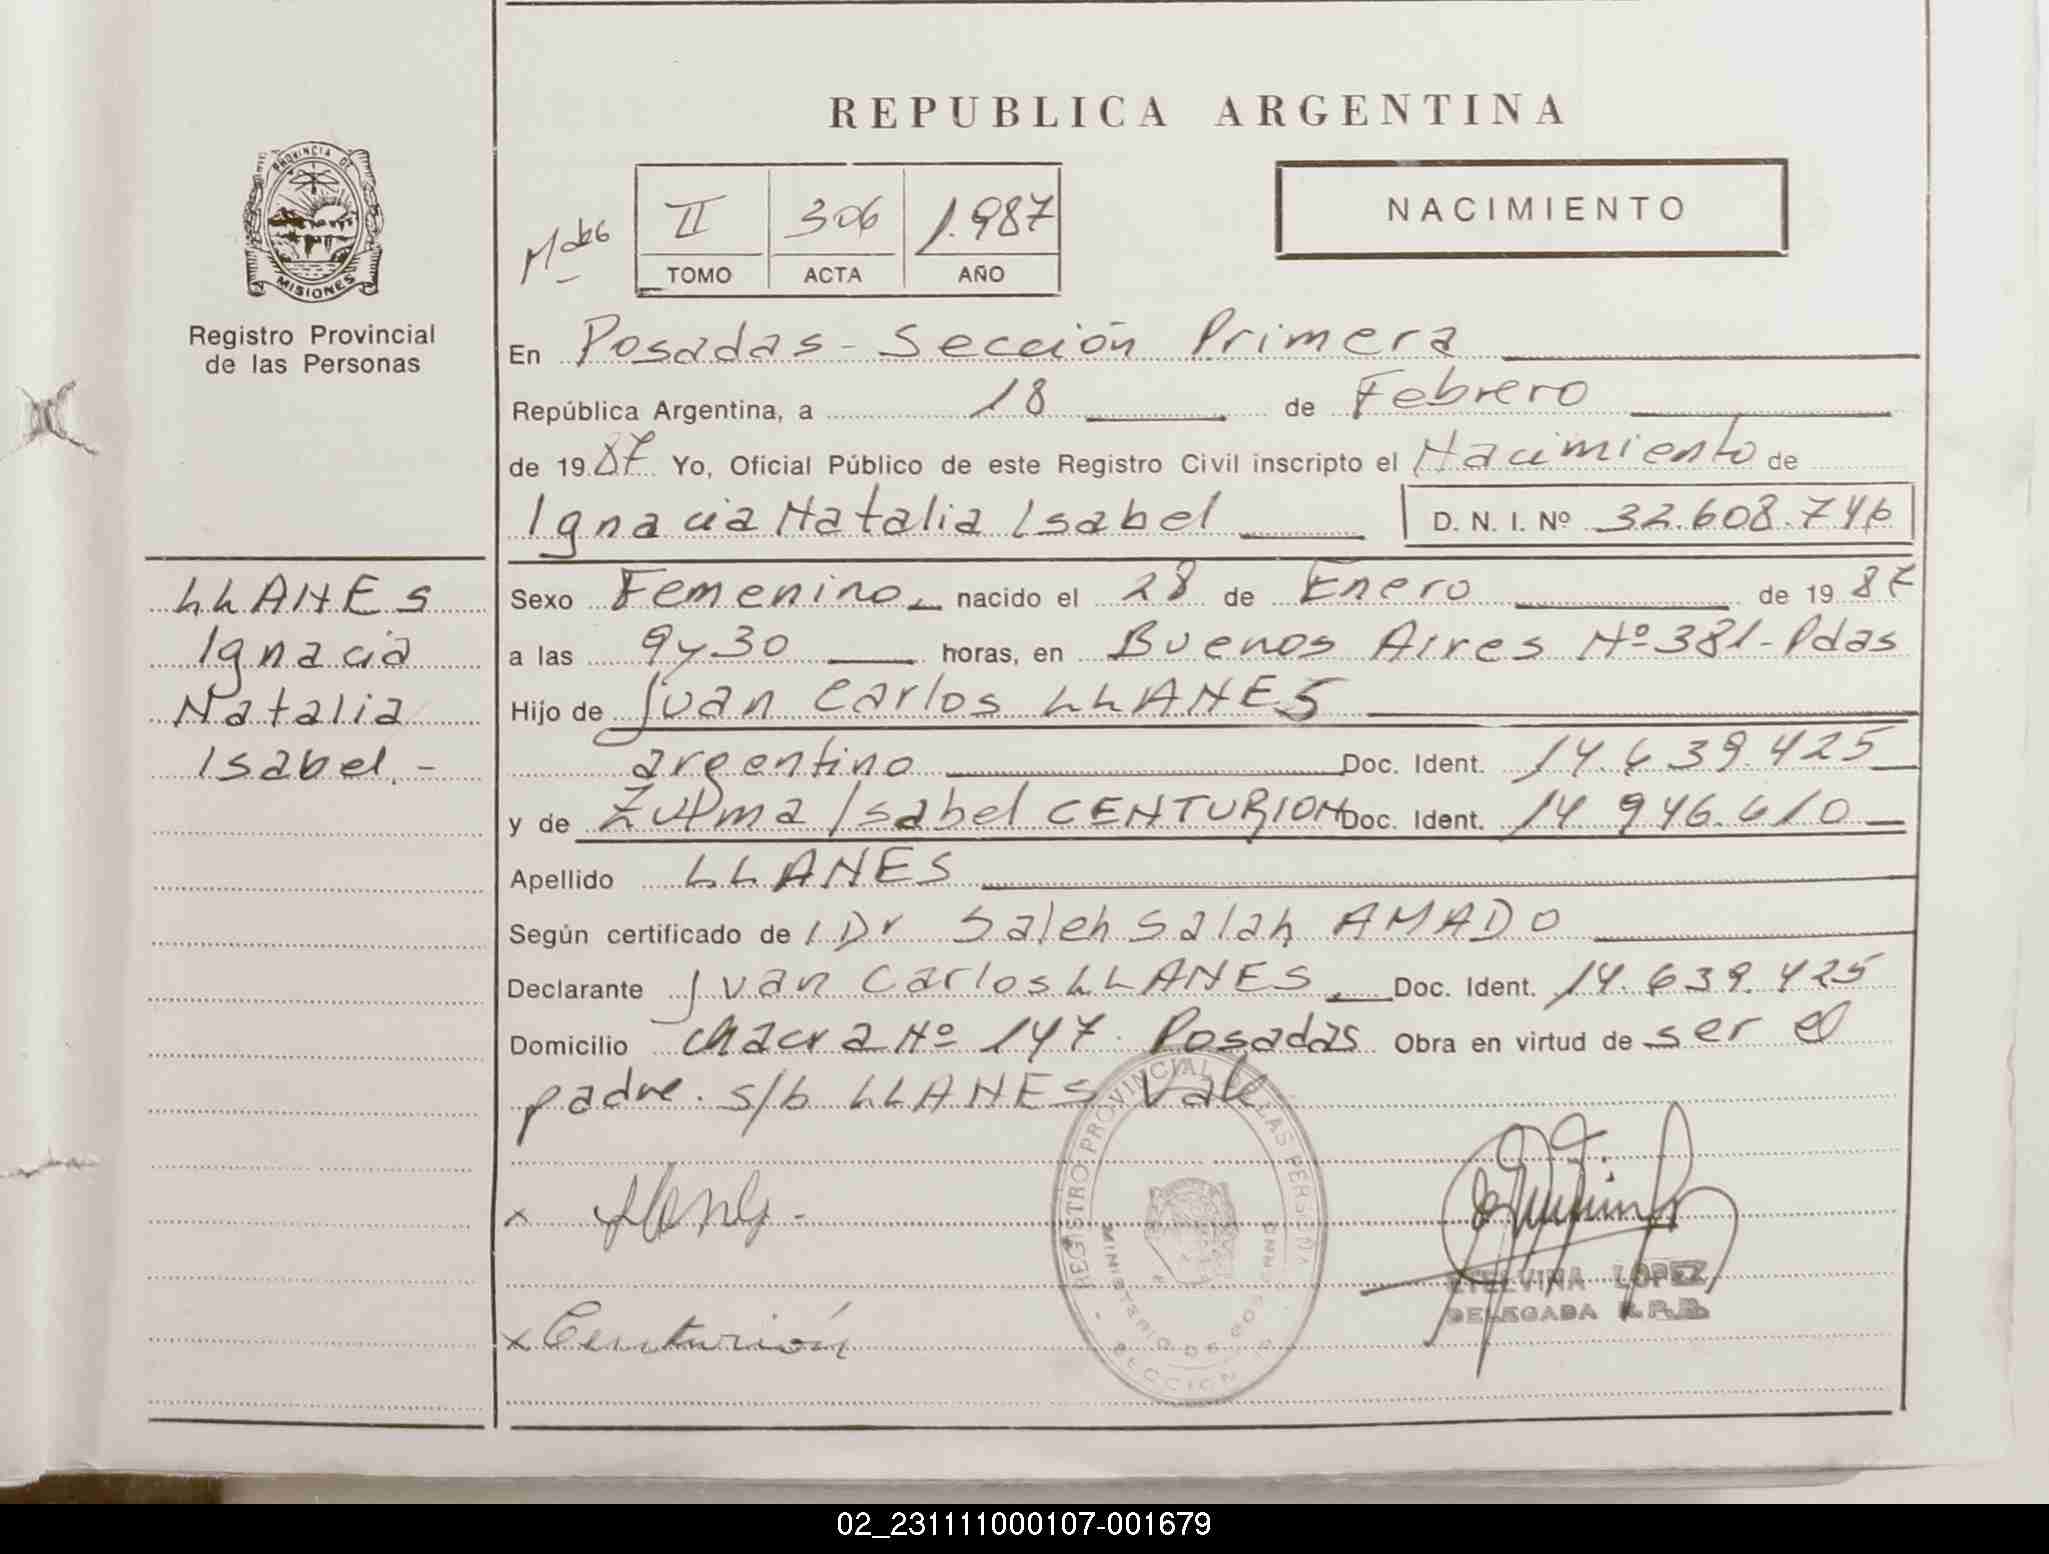 REPUBLICA ARGENTINA
PROVINCIA DE
MISIONES
Registro Provincial
de las Personas
II 306 1.987
TOMO ACTA AÑO
NACIMIENTO
En Posadas - Sección Primera
República Argentina, a 18 de Febrero
de 19 87 Yo, Oficial Público de este Registro Civil inscripto el Nacimiento de
Ignacia Natalia Isabel D. N. I. Nº 32.608.746
LLANES
Ignacia
Natalia
Isabel.-
Sexo Femenino nacido el 28 de Enero de 19 87
a las 9 y 30 horas, en Buenos Aires Nº 381 - Pdas
Hijo de Juan Carlos LLANES
argentino Doc. Ident. 14.639.425
y de Zulma Isabel CENTURION Doc. Ident. 14.946.610
Apellido LLANES
Según certificado de l Dr Saleh Salah AMADO
Declarante Juan Carlos LLANES. Doc. Ident. 14.639.425
Domicilio Chacra Nº 147. Posadas Obra en virtud de ser el
padre. s/b LLANES Vale
REGISTRO PROVINCIAL DE LAS PERSONAS
MINISTERIO DE GOBIERNO
SECCION
x
ETELVINA LOPEZ
DELEGADA R.P.P.
x Centurión
02_231111000107-001679